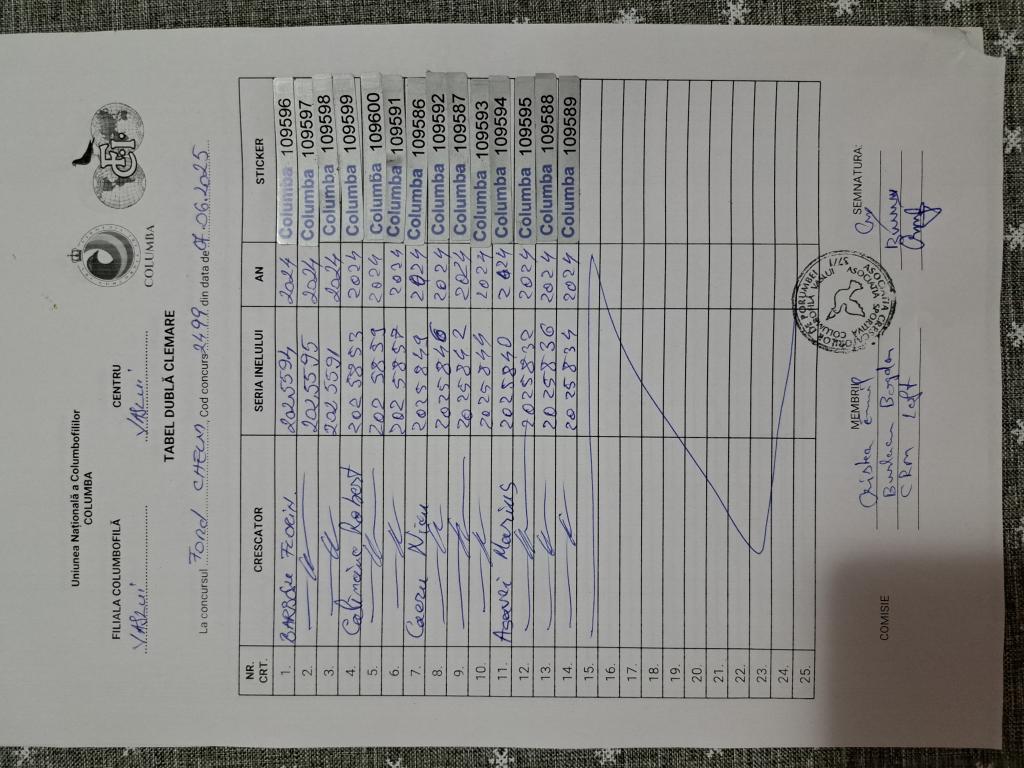 Uniunea Națională a Columbofililor
COLUMBA
COLUMBA
FCI
FILIALA COLUMBOFILĂ CENTRU
VASLUI VASLUI
TABEL DUBLĂ CLEMARE
La concursul FOND, Cod concurs 2499 din data de 07.06.2025
NR. CRT. CRESCATOR SERIA INELULUI AN STICKER
1. BARBSU FLORIN 2025594 2024 Columba 109596
2. -//- 2025595 2024 Columba 109597
3. -//- 2025591 2024 Columba 109598
4. Robert 2025853 2024 Columba 109599
5. -//- 2025859 2024 Columba 109600
6. -//- 2025857 2024 Columba 109591
7. 2025849 2024 Columba 109586
8. -//- 2025846 2024 Columba 109592
9. -//- 2025842 2024 Columba 109587
10. -//- 2025844 2024 Columba 109593
11. Asavei Marius 2025840 2024 Columba 109594
12. -//- 2025832 2024 Columba 109595
13. -//- 2025836 2024 Columba 109588
14. -//- 2025834 2024 Columba 109589
15.
16.
17.
18.
19.
20.
21.
22.
23.
24.
25.
COMISIE MEMBRII: SEMNATURA:
Emil
Burlacu Bogdan